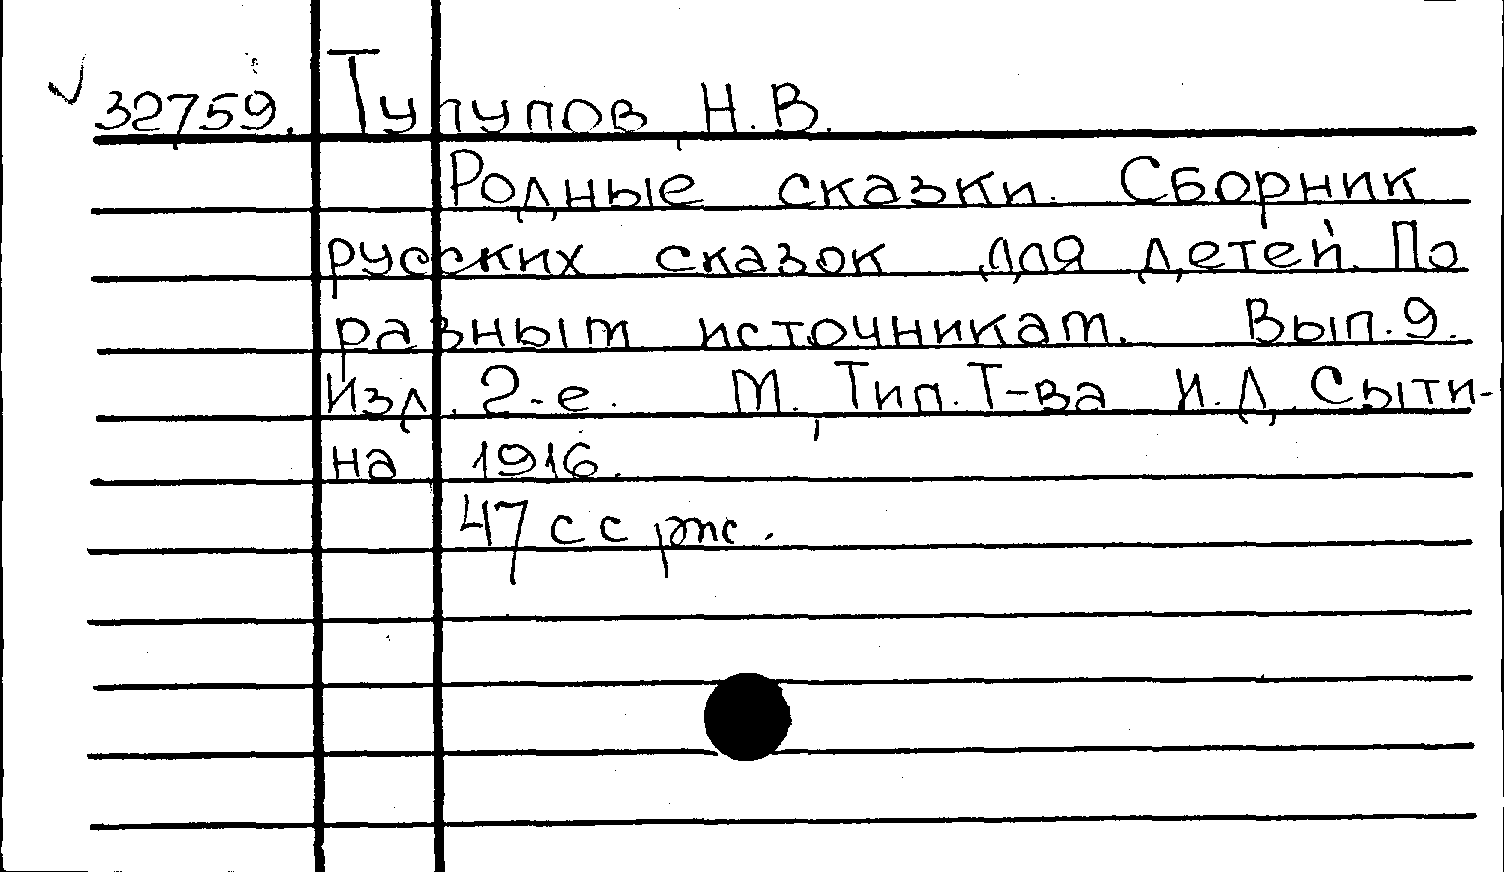 32759. Тулупов Н.В.
Родные сказки. Сборник
русских сказок для детей. По
разным источникам. Вып. 9.
Изд. 2-е. М. Тип. Т-ва И.Д. Сыти-
на 1916.
47 с с рис.